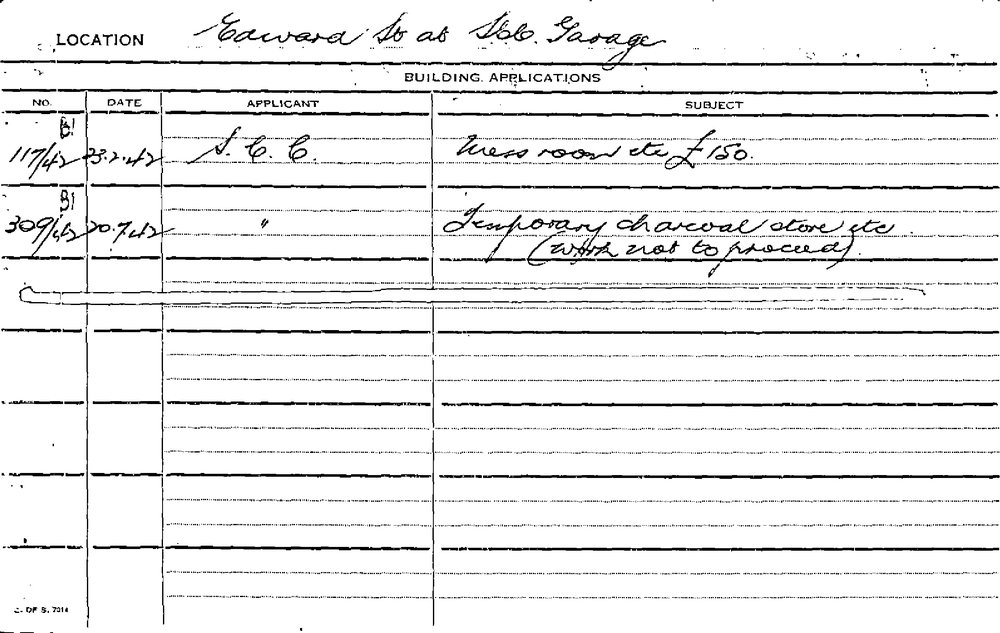 LOCATION Edward St at SCC. Garage
BUILDING APPLICATIONS
NO. DATE APPLICANT SUBJECT
B1
117/42 23.2.42 S.C.C. Mess room etc £150.
B1
309/42 20.7.42 " Temporary charcoal store etc.
(work not to proceed).
C. OF S. 7014